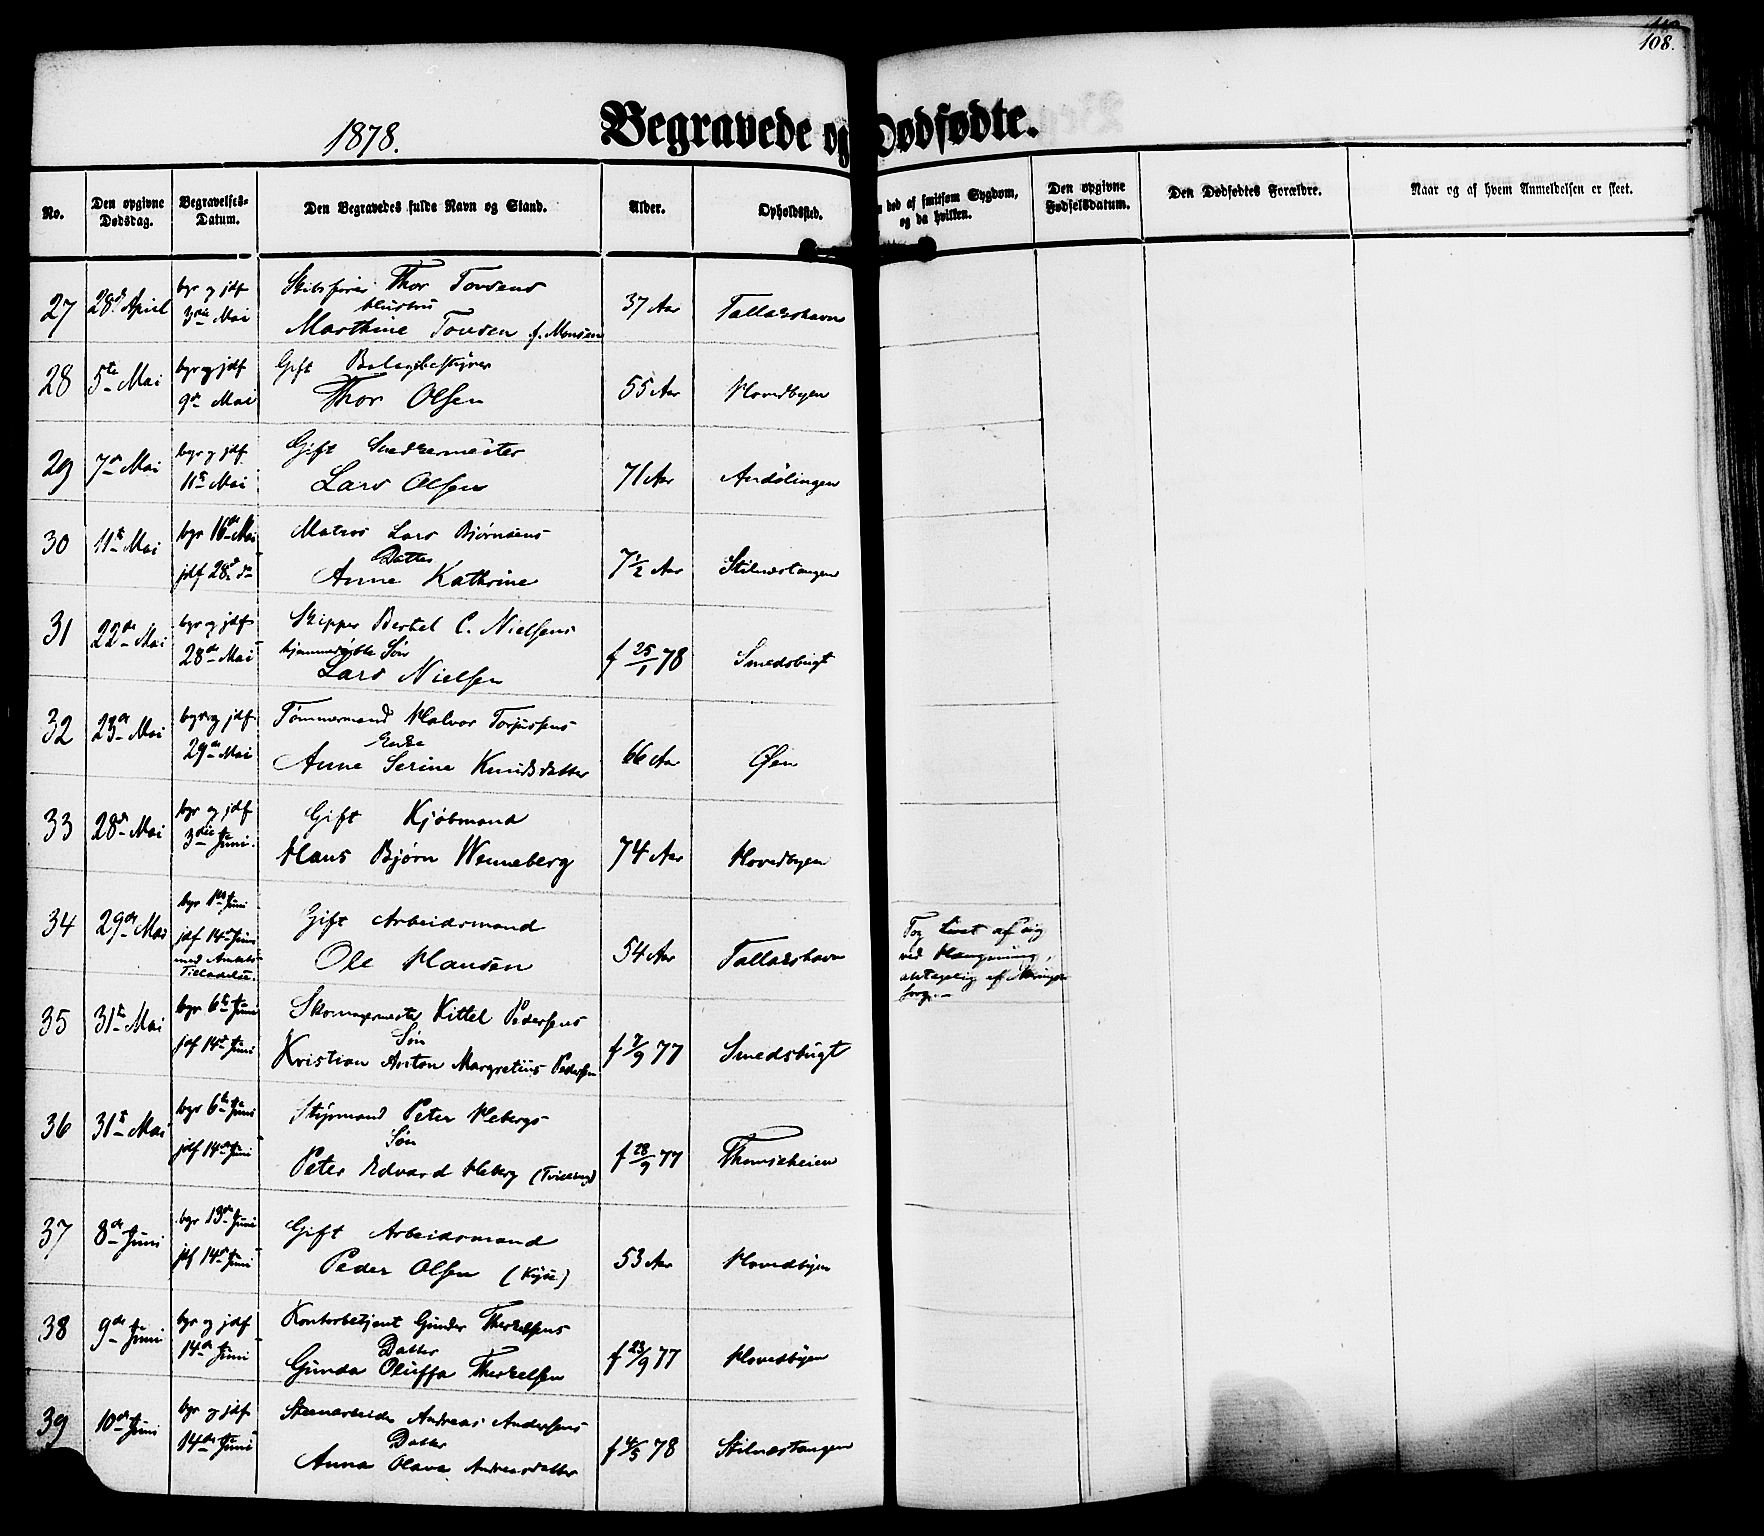 108.
1878.
Begravede og Dødfødte.
No.
Den opgivne Dødsdag.
Begravelses-Datum.
Den Begravedes fulde Navn og Stand.
Alder.
Opholdssted.
død af smitsom Sygdom, og da hvilken.
Den opgivne Fødselsdatum.
Den Dødfødtes Forældre.
Naar og af hvem Anmeldelsen er skeet.
27 28d April bgr og jdf 3die Mai
Skibsfører Thor Tovsens
Hustru
Marthine Tovsen f. Monsen
37 Aar
Tallakshavn
28 5te Mai bgr og jdf 9de Mai
Gift Bolagsbestyrer
Thor Olsen
55 Aar
Hovedbyen
29 7de Mai bgr og jdf 11te Mai
Gift Snedkermester
Lars Olsen
71 Aar
30 11te Mai bgr 16de Mai jdf 28de do
Matros Lars Bjørnsens
Datter
Anne Kathrine
7½ Aar
Stilnæstangen
31 22de Mai bgr og jdf 28de Mai
Skipper Bertel C. Nielsens
hjemmedøbte Søn
Lars Nielsen
f 25/1 78
Smedsbugt
32 23de Mai bgr og jdf 29de Mai
Tømmermand Halvor Torjussens
Enke
Anne Serine Knudsdatter
66 Aar
Øen
33 28de Mai bgr og jdf 3die Juni.
Gift Kjøbmand
Hans Bjørn Wenneberg
74 Aar
Hovedbyen
34 29de Mai bgr 1ste Juni
jdf 14de Juni
med Amtets
Tilladelse.
Gift Arbeidsmand
Ole Hansen
54 Aar
Tallakshavn
Tog Livet af sig
ved Hængning,
antagelig af Nærings
sorg.
35 31te Mai bgr 6te Juni jdf 14de Juni
Skomagermester Kittel Pedersens
Søn
Kristian Anton Margretius Pedersen
f 7/9 77
Smedsbugt
36 31te Mai bgr 6te Juni jdf 14de Juni
Styrmand Peter Hebergs
Søn
Peter Edvard Heberg (Tvilling)
f 28/9 77
37 8de Juni bgr 13de Juni jdf 14de Juni
Gift Arbeidsmand
Peder Olsen
53 Aar
Hovedbyen
38 9de Juni bgr og jdf 14de Juni
Kontorbetjent Gunder Therkelsens
Datter
Gunda Oluffa Therkelsen
f 23/9 77
Hovedbyen
39 10de Juni bgr og jdf 14de Juni
Stenarbeider Andreas Andersens
Datter
Anna Olava Andreasdatter
f 4/5 78
Stilnæstangen